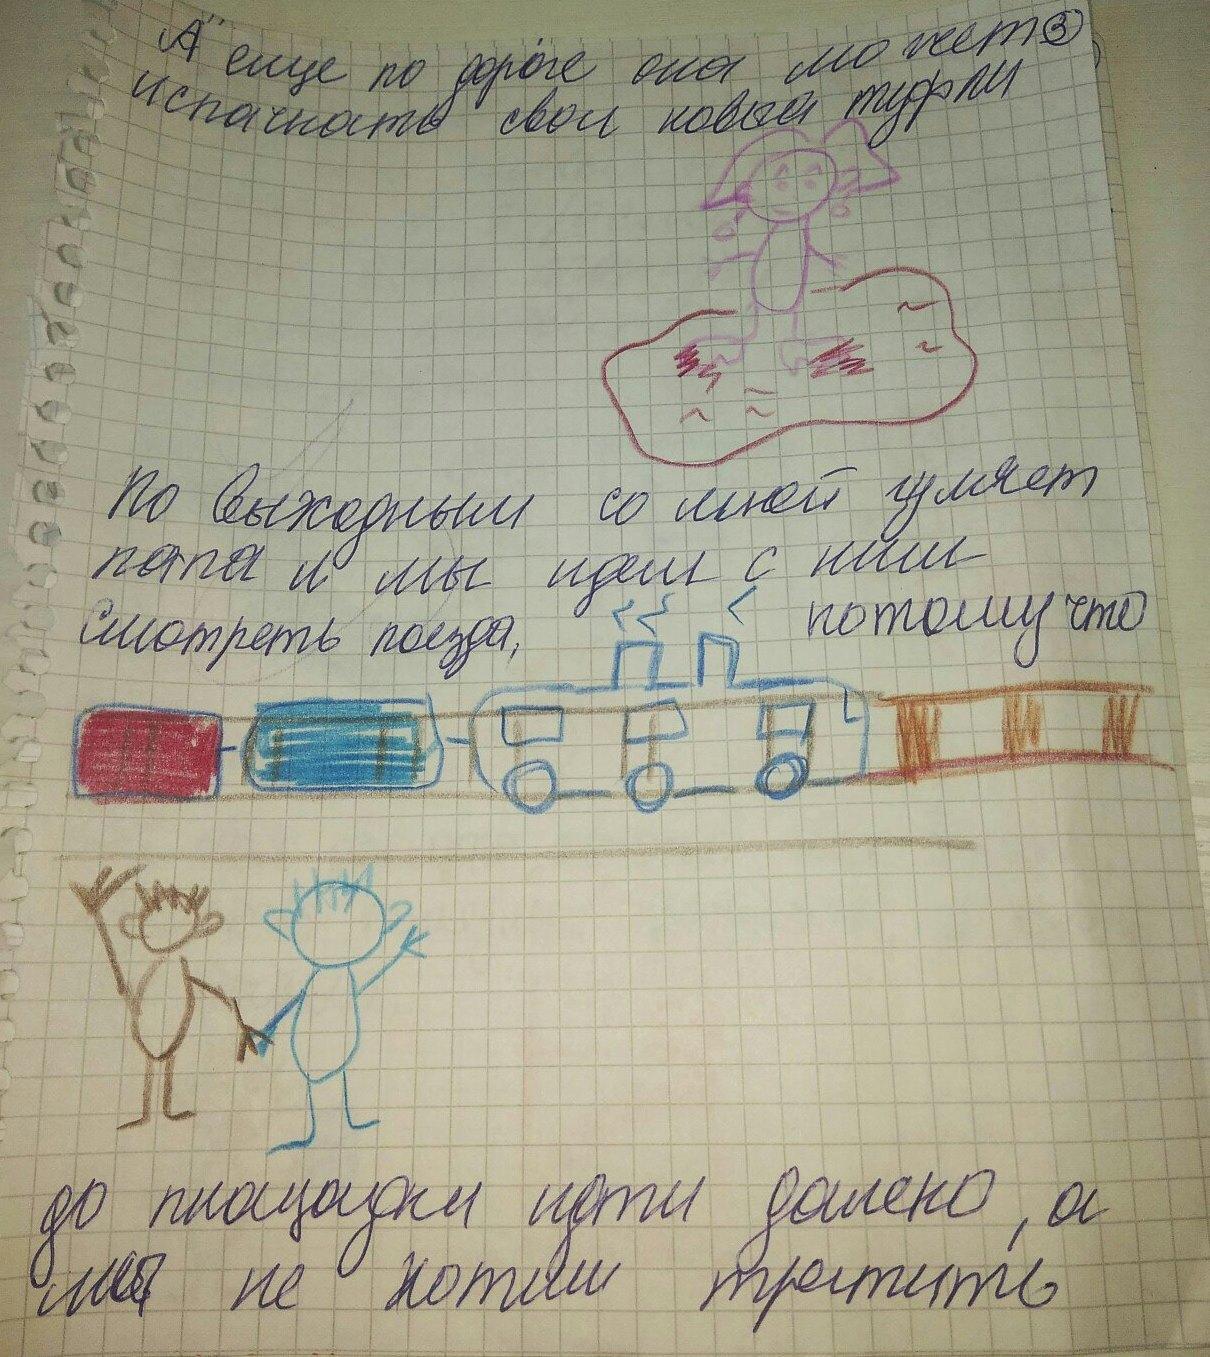 А еще по дороге она может ③
испачкать свои новые туфли
По выходным со мной гуляет
папа и мы идем с ним
смотреть поезда, потому что
до площадки идти далеко, а
мы не хотим тратить